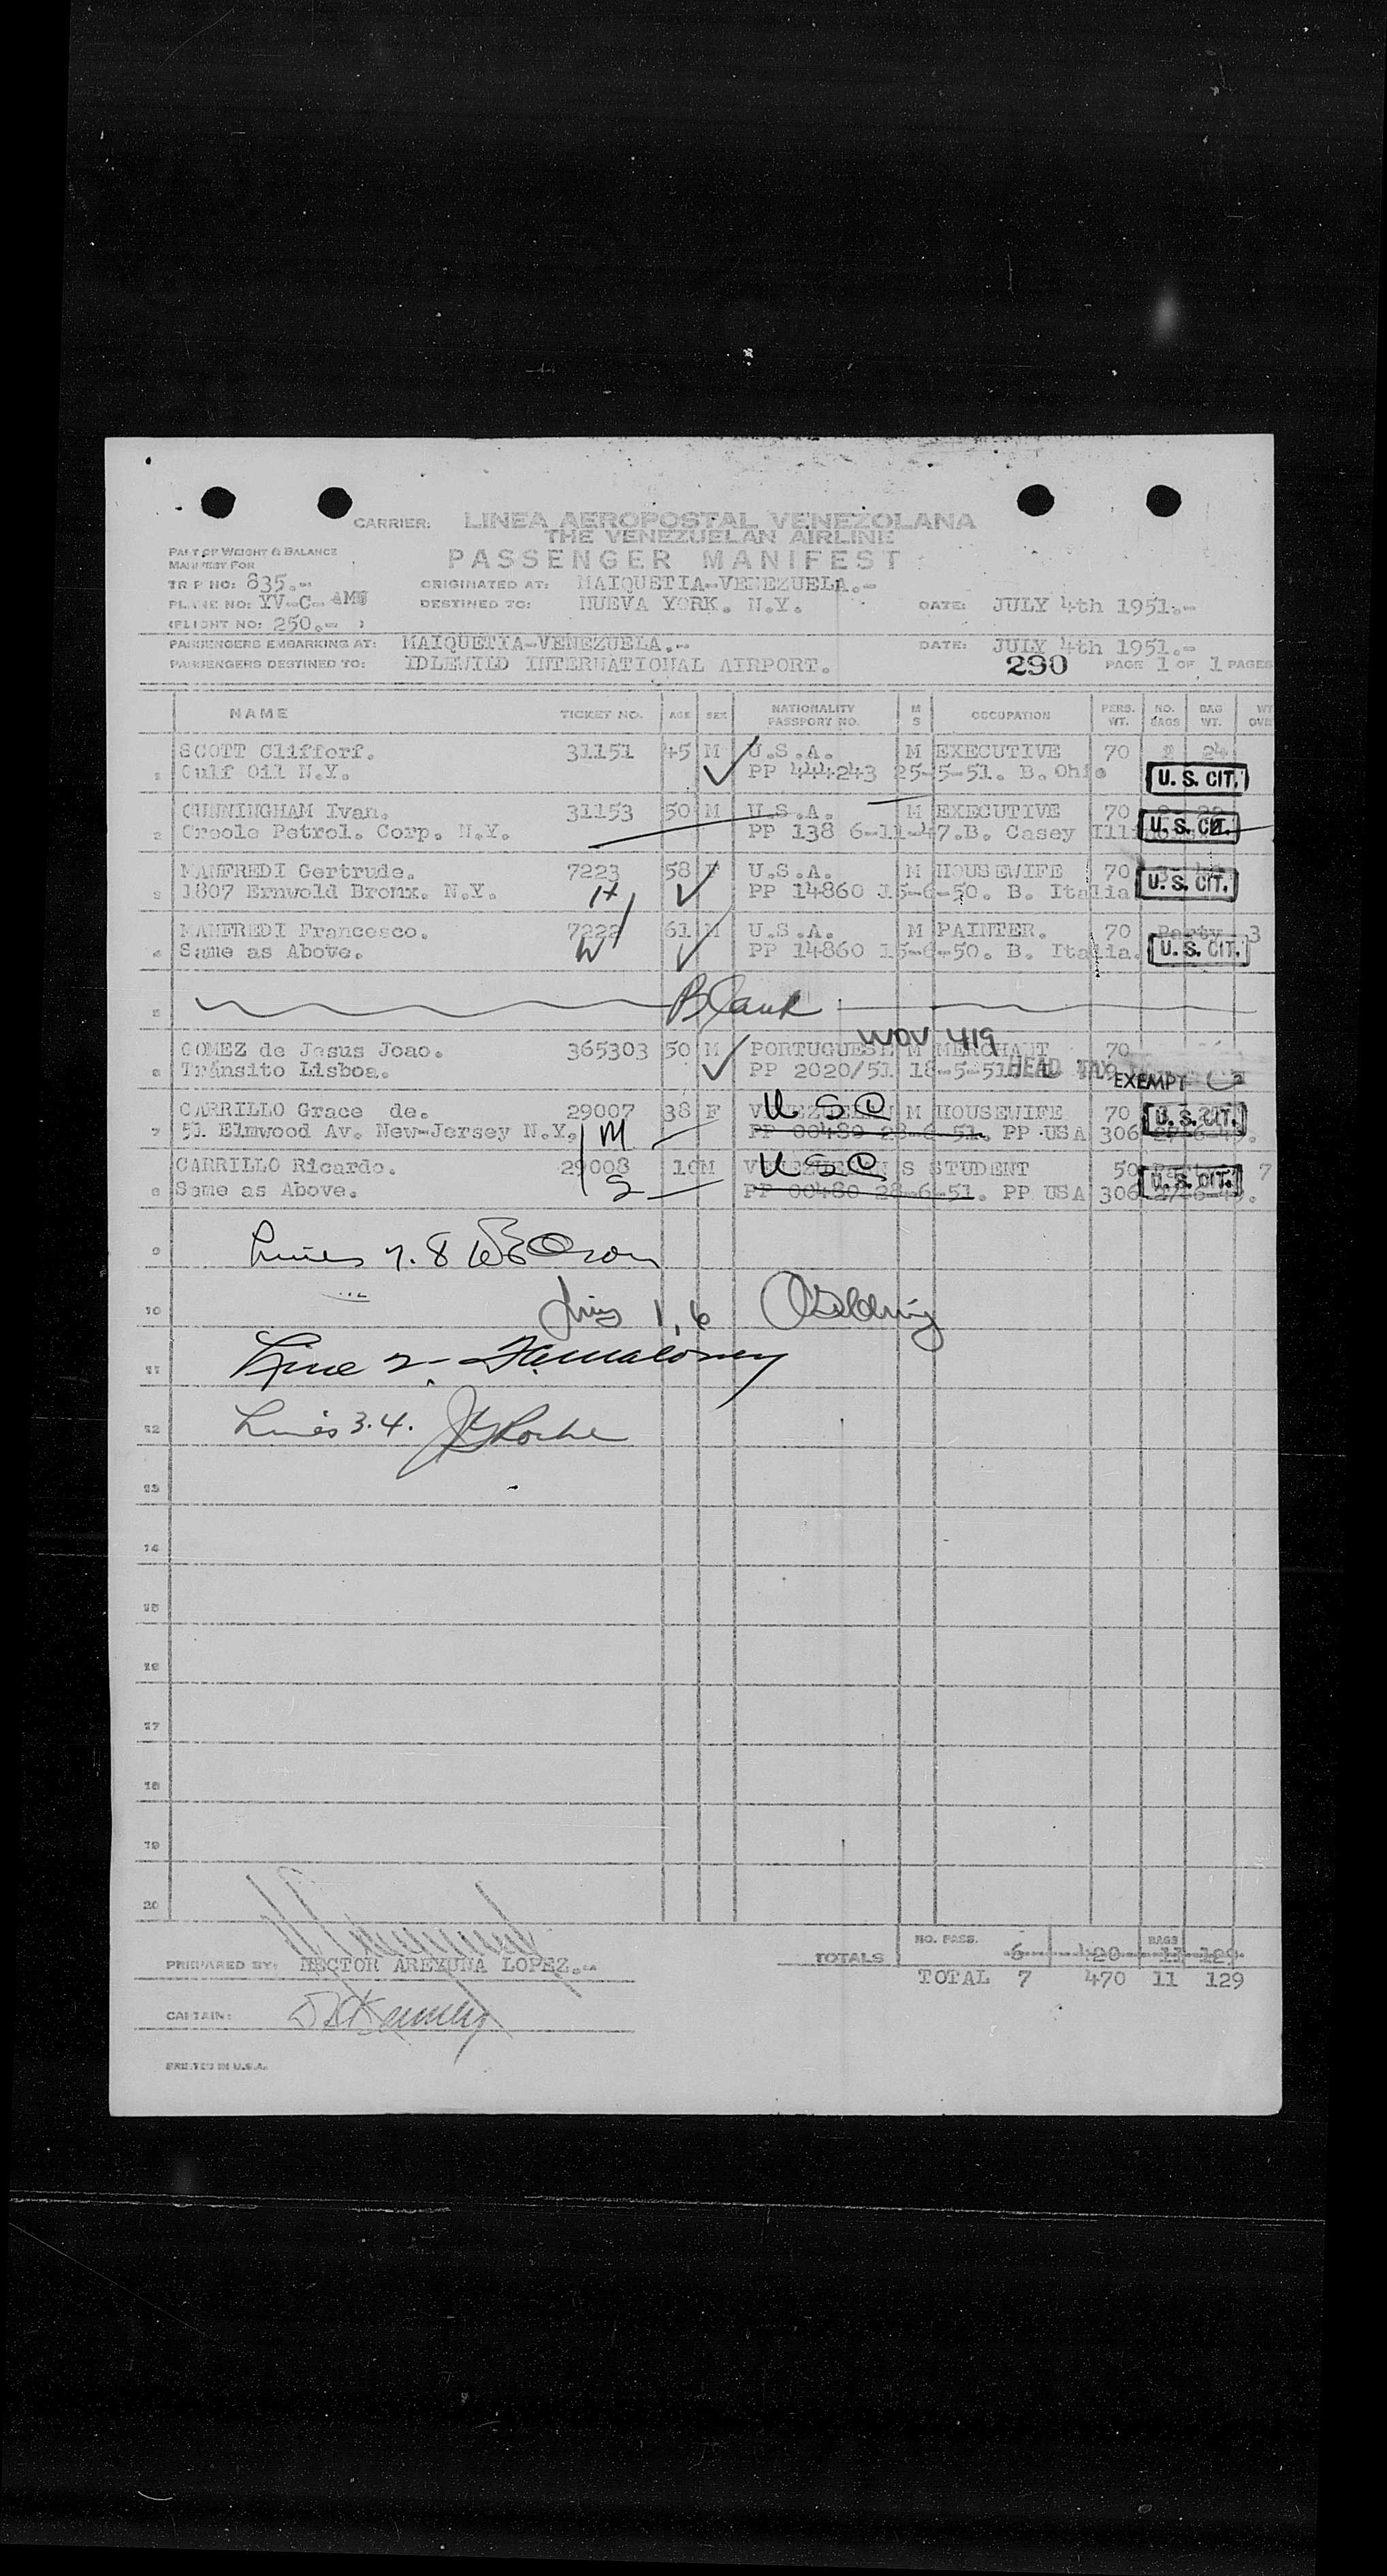 CARRIER: LINEA AEROPOSTAL VENEZOLANA
THE VENEZUELAN AIRLINE
PASSENGER MANIFEST
PART OF WEIGHT & BALANCE
MANIFEST FOR
TRIP NO: 835.- ORIGINATED AT: MAIQUETIA-VENEZUELA.-
PLANE NO: YV-C- AMS DESTINED TO: NUEVA YORK. N.Y. DATE: JULY 4th 1951.-
(FLIGHT NO: 250.- )
PASSENGERS EMBARKING AT: MAIQUETIA-VENEZUELA.- DATE: JULY 4th 1951.-
PASSENGERS DESTINED TO: IDLEWILD INTERNATIONAL AIRPORT. 290 PAGE 1 OF 1 PAGES
NAME TICKET NO. AGE SEX NATIONALITY PASSPORT NO. M S OCCUPATION PERS. WT. NO. BAGS BAG WT. WT OVR
SCOTT Clifforf. 31151 45 M U.S.A. M EXECUTIVE 70 2 24
1 Gulf Oil N.Y. PP 444243 25-5-51. B. Ohio U. S. CIT.
CUNNINGHAM Ivan. 31153 50 M U.S.A. M EXECUTIVE 70
2 Creole Petrol. Corp. N.Y. PP 138 6-11-47.B. Casey U. S. CIT.
MANFREDI Gertrude. 7223 58 F U.S.A. M HOUSEWIFE 70
3 1807 Ernwold Bronx. N.Y. H PP 14860 15-6-50. B. Italia U. S. CIT.
MANFREDI Francesco. 7222 61 M U.S.A. M PAINTER. 70 Party 3
4 Same as Above. W PP 14860 15-6-50. B. Italia. U. S. CIT.
5 Blank
WOV 419
GOMEZ de Jesus Joao. 365303 50 M PORTUGUESE M MERCHANT 70
6 Tránsito Lisboa. PP 2020/51 18-5-51. HEAD TAX EXEMPT
CARRILLO Grace de. 29007 38 F U S C M HOUSEWIFE 70 U. S. CIT.
7 51 Elmwood Av. New-Jersey N.Y. M PP 00480 28-6-51. PP USA 306
CARRILLO Ricardo. 29008 10 M U S C S STUDENT 50 7
8 Same as Above. S PP 00480 28-6-51. PP USA 306 U. S. CIT.
9 Lines 7. 8
10 Lines 1, 6
11 Line 2-
12 Lines 3.4.
13
14
15
16
17
18
19
20
NO. PASS. BAGS
TOTALS 6 420 11 129
PREPARED BY: HECTOR AREYUNA LOPEZ.- TOTAL 7 470 11 129
CAPTAIN:
PRINTED IN U.S.A.